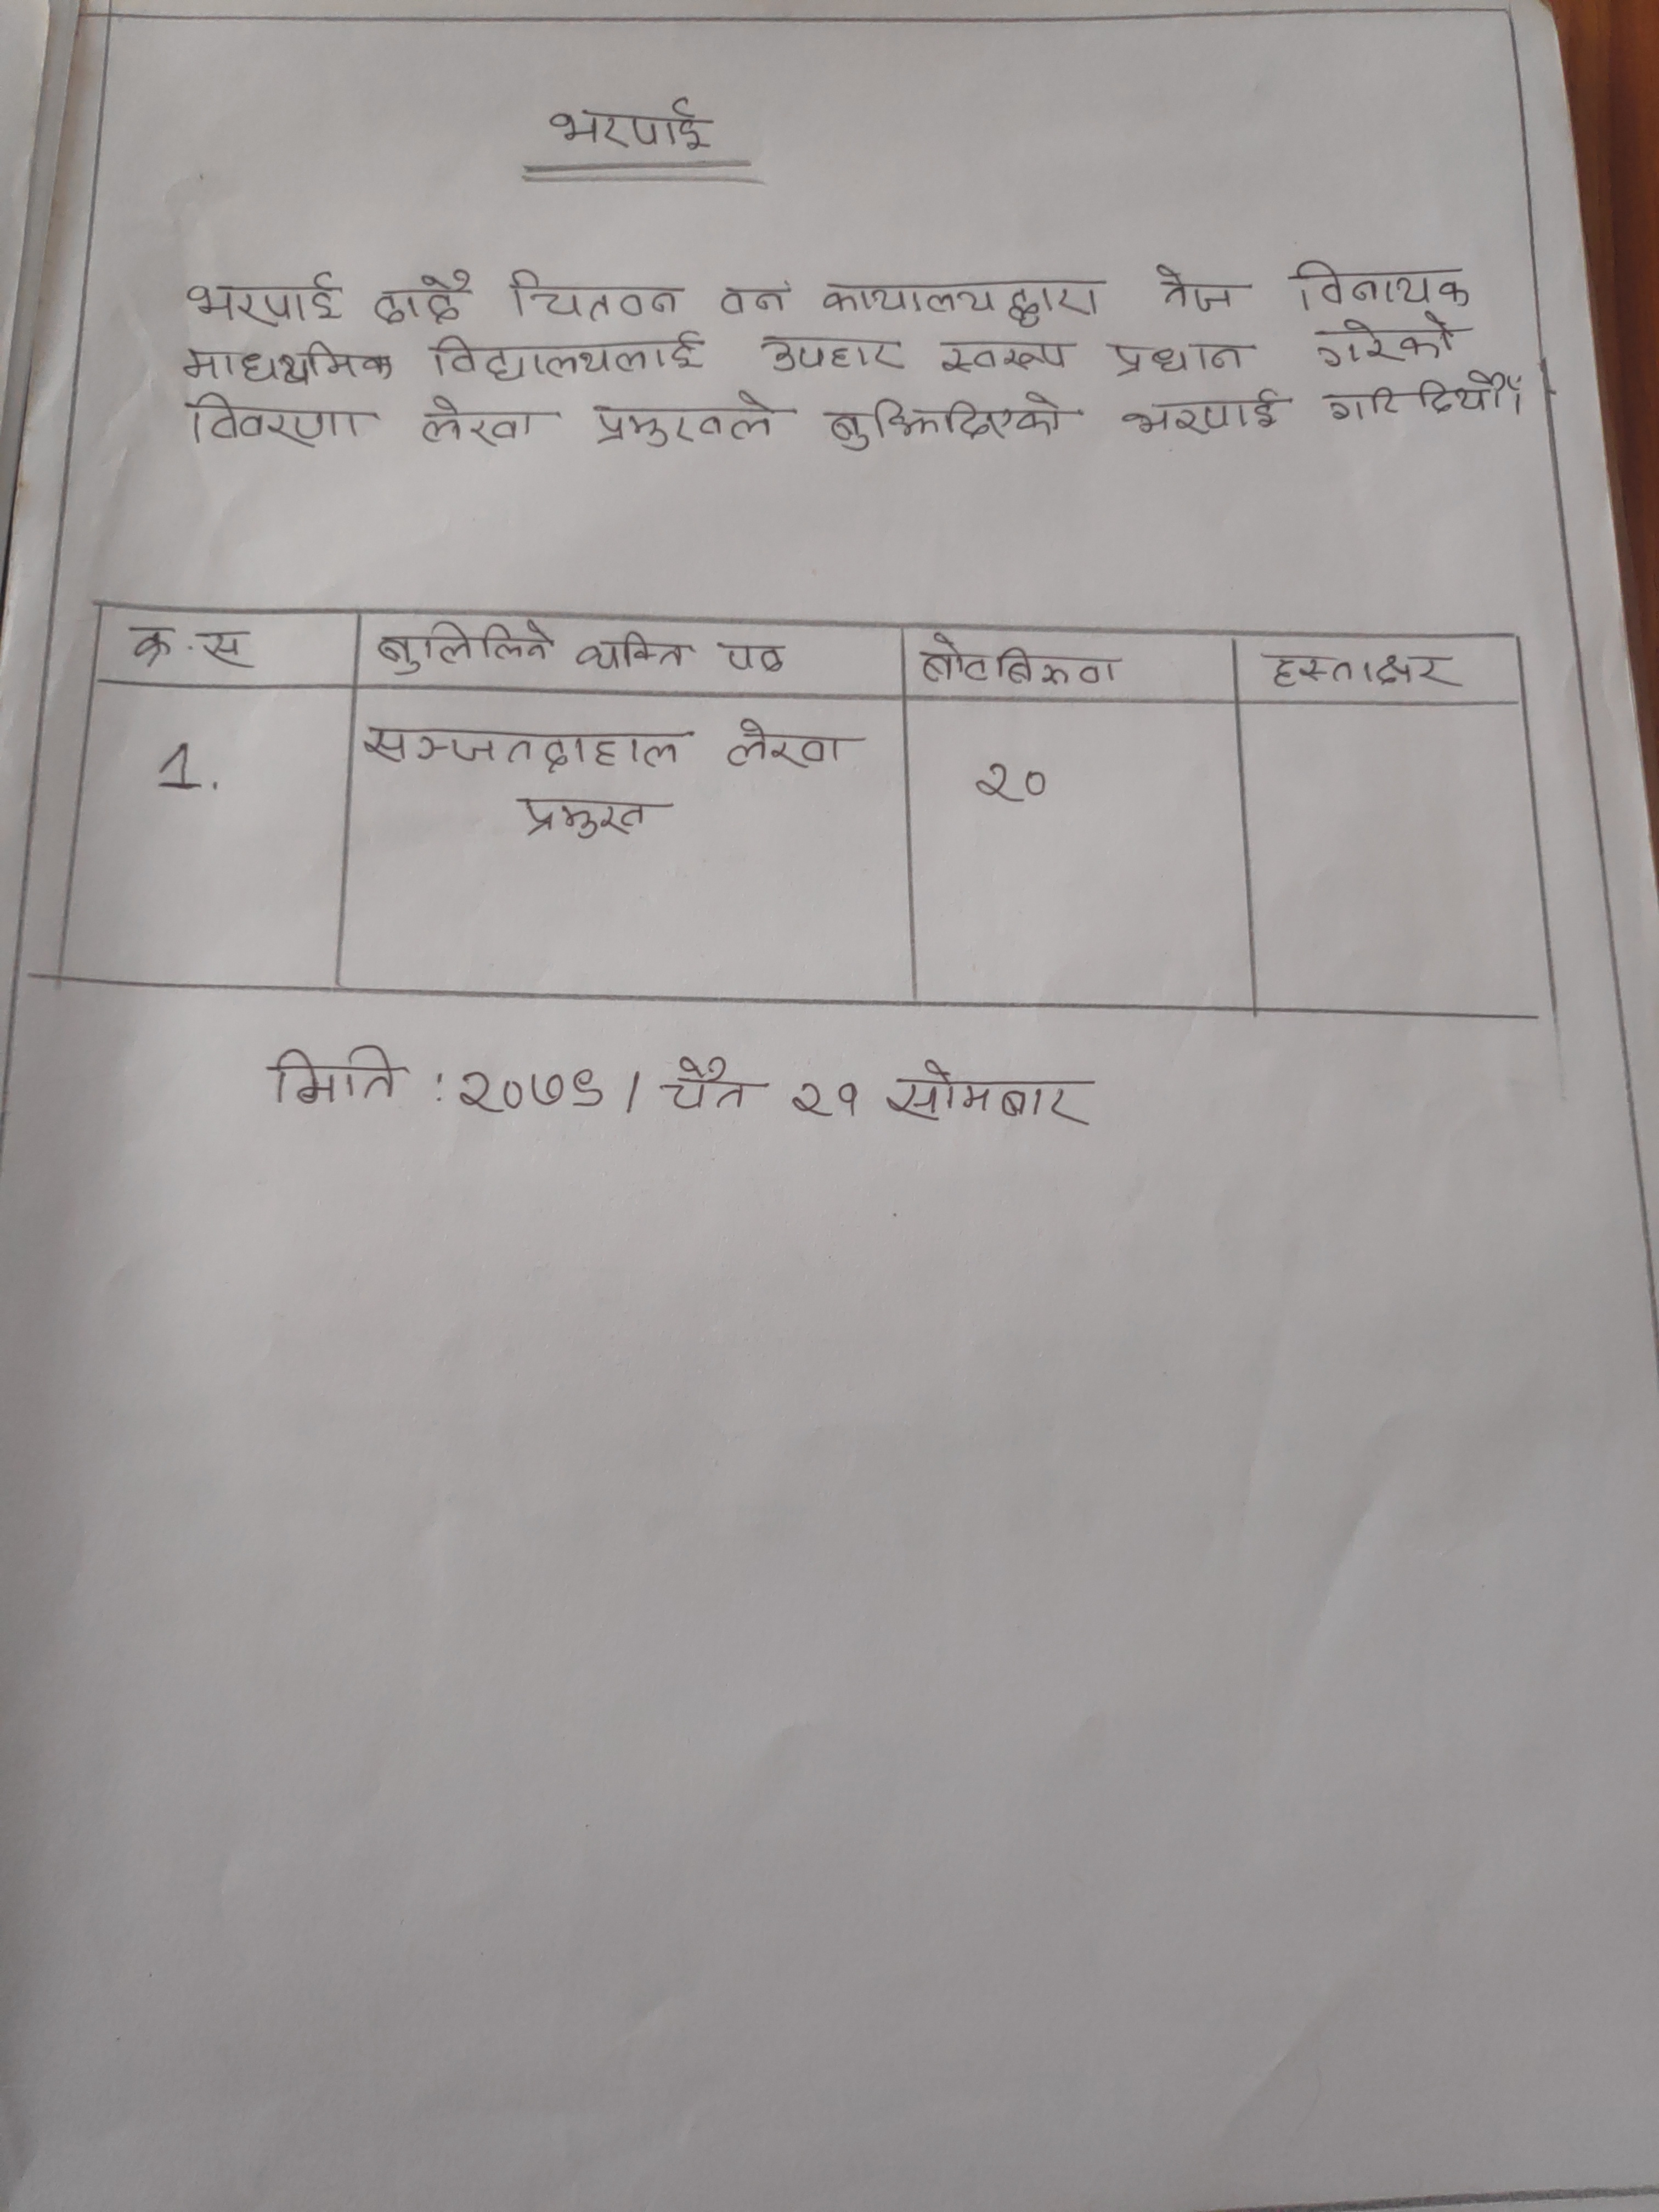 भरपाई
भरपाई ढाढै चितवन वन कायालयद्धारा तेज विनायक
माधथमिक विद्यालयलाई उपहार स्वरूप प्रधान गरेको
विवरणा लेखा प्रमुखले बुझिदिएको भरपाई गरिदियौँ।
क्र.स बुलिलिने व्यक्ति पढ बोटबिरूवा हस्ताक्षर
1. सञ्जतदाहाल लेखा २०
प्रमुख
मिति : २०७९ / चैत २१ सोमबार